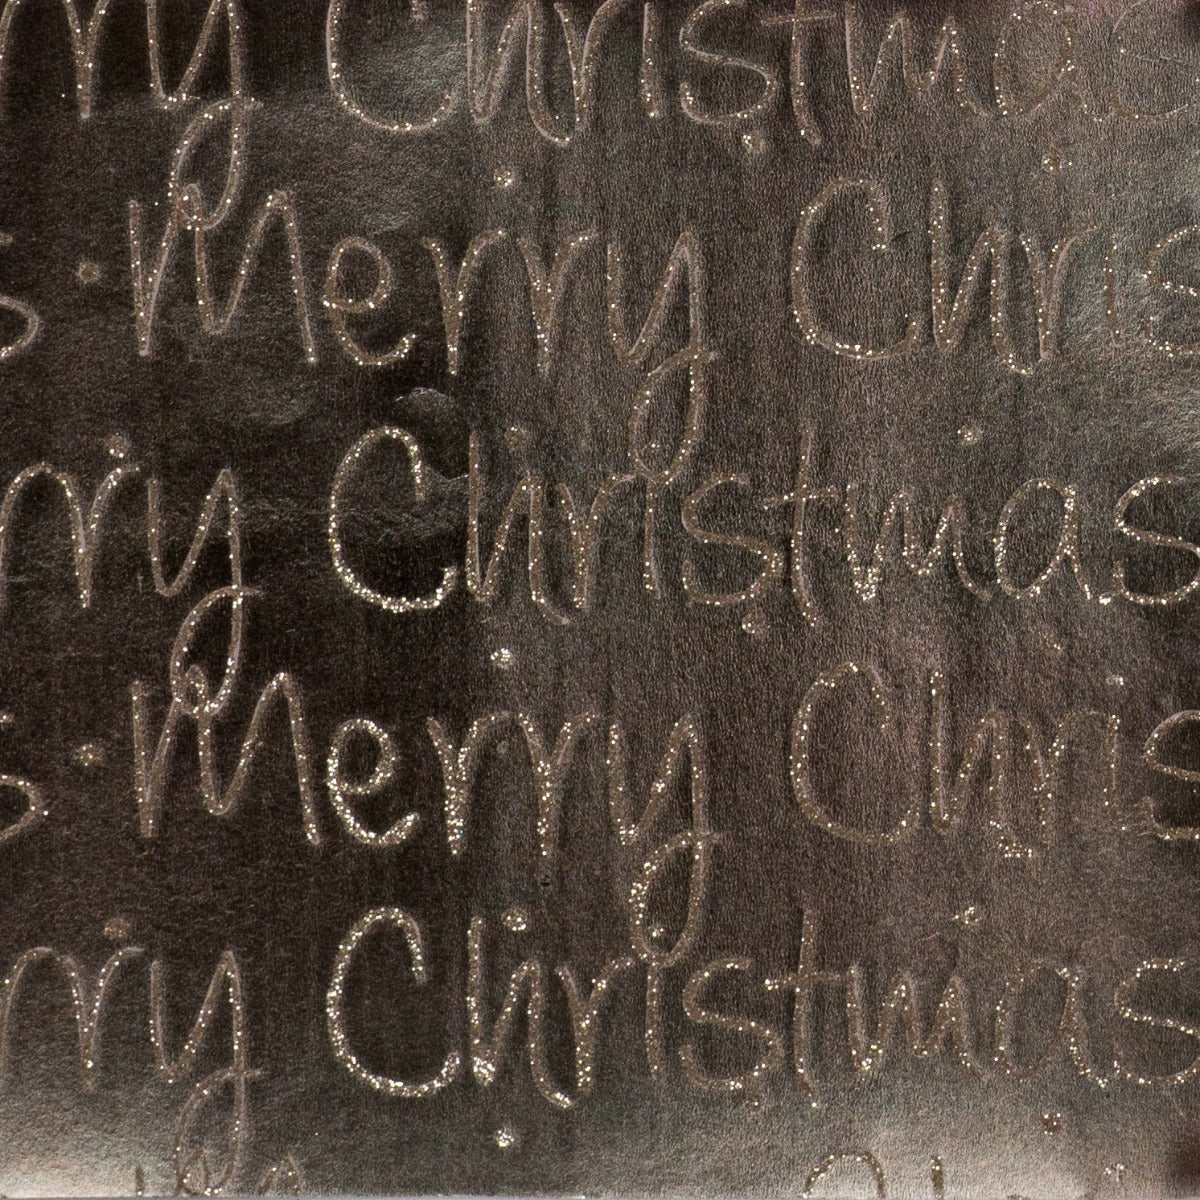 rry Christmas
s · Merry Chris
rry Christmas
s · Merry Chris
rry Christmas